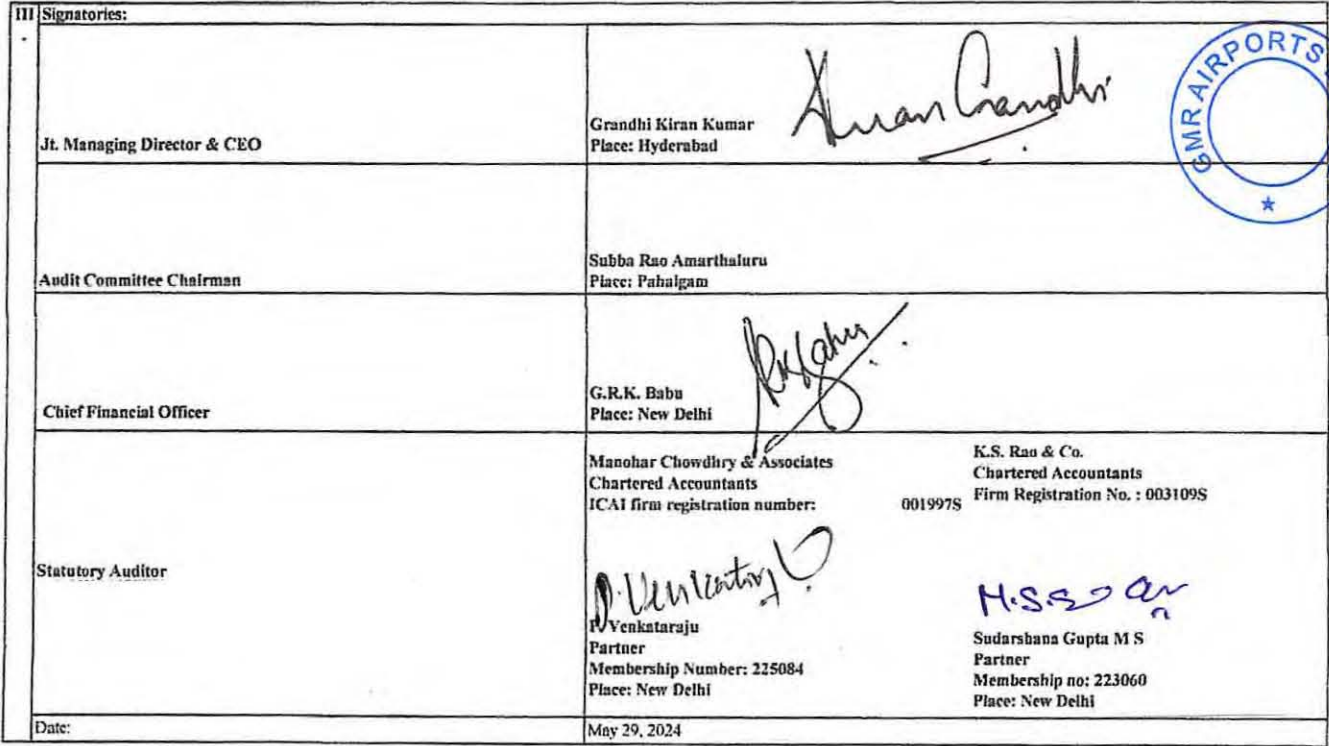 III Signatories:
.
Jt. Managing Director & CEO
Grandhi Kiran Kumar
Place: Hyderabad
Kiran Grandhi
GMR AIRPORTS
Audit Committee Chairman
Subba Rao Amarthaluru
Place: Pahalgam
Chief Financial Officer
G.R.K. Babu
Place: New Delhi
Statutory Auditor
Manohar Chowdhry & Associates
Chartered Accountants
ICAI firm registration number: 001997S
P. Venkataraju
P. Venkataraju
Partner
Membership Number: 225084
Place: New Delhi
K.S. Rao & Co.
Chartered Accountants
Firm Registration No. : 003109S
Sudarshana Gupta M S
Partner
Membership no: 223060
Place: New Delhi
Date:
May 29, 2024